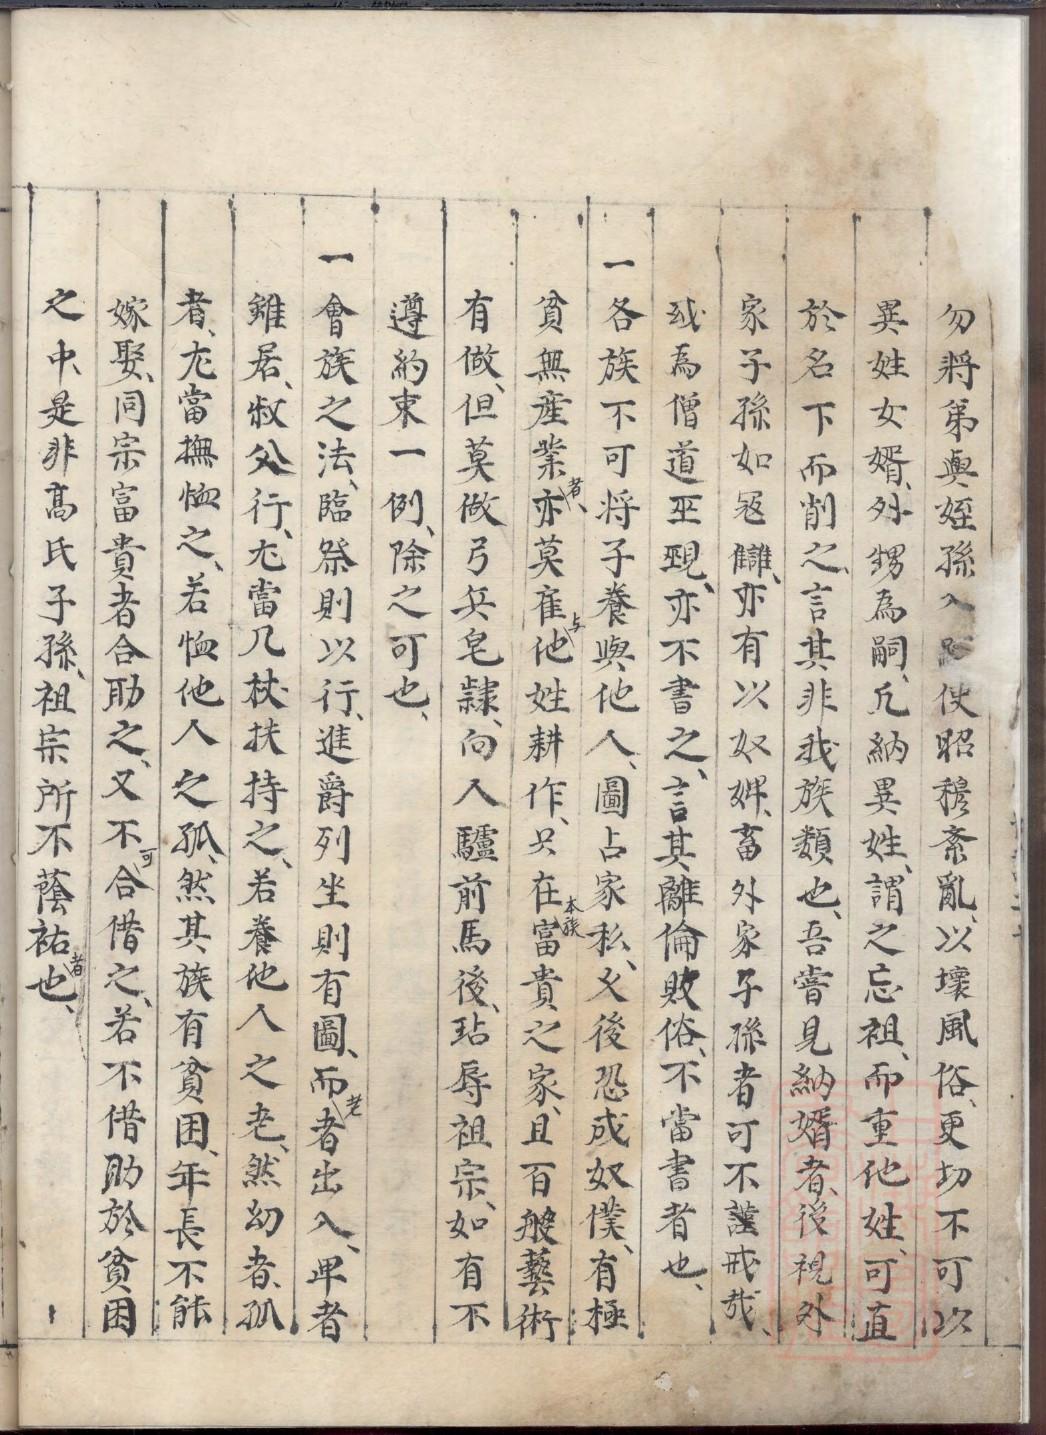 勿將弟與姪孫入使昭穆紊亂、以壞風俗、更切不可以
異姓女婿、外甥為嗣、凡納異姓、謂之忘祖、而重他姓、可直
於名下而削之、言其非我族類也、吾嘗見納婿者、後視外
家子孫如冦讎、亦有以奴婢、畜外家子孫者可不謹戒哉、
或為僧道巫覡、亦不書之、言其離倫敗俗、不當書者也、
一各族不可將子養與他人、圖占家私、又後恐成奴僕、有極
貧無産業者、亦莫雇与他姓耕作、只在本族富貴之家、且百般藝術
有做、但莫做弓兵皂隸、向人驢前馬後、玷辱祖宗、如有不
遵約束一例、除之可也、
一會族之法、臨祭則以行、進爵列坐則有圖、而老者出入、卑者
雖居、叔父行、尢當几杖扶持之、若養他人之老、然幼者、孤
者、尢當撫恤之、若恤他人之孤、然其族有貧困、年長不能
嫁娶、同宗富貴者合助之、又不可合借之、若不借助於貧困
之中、是非高氏子孫、祖宗所不蔭祐者也、